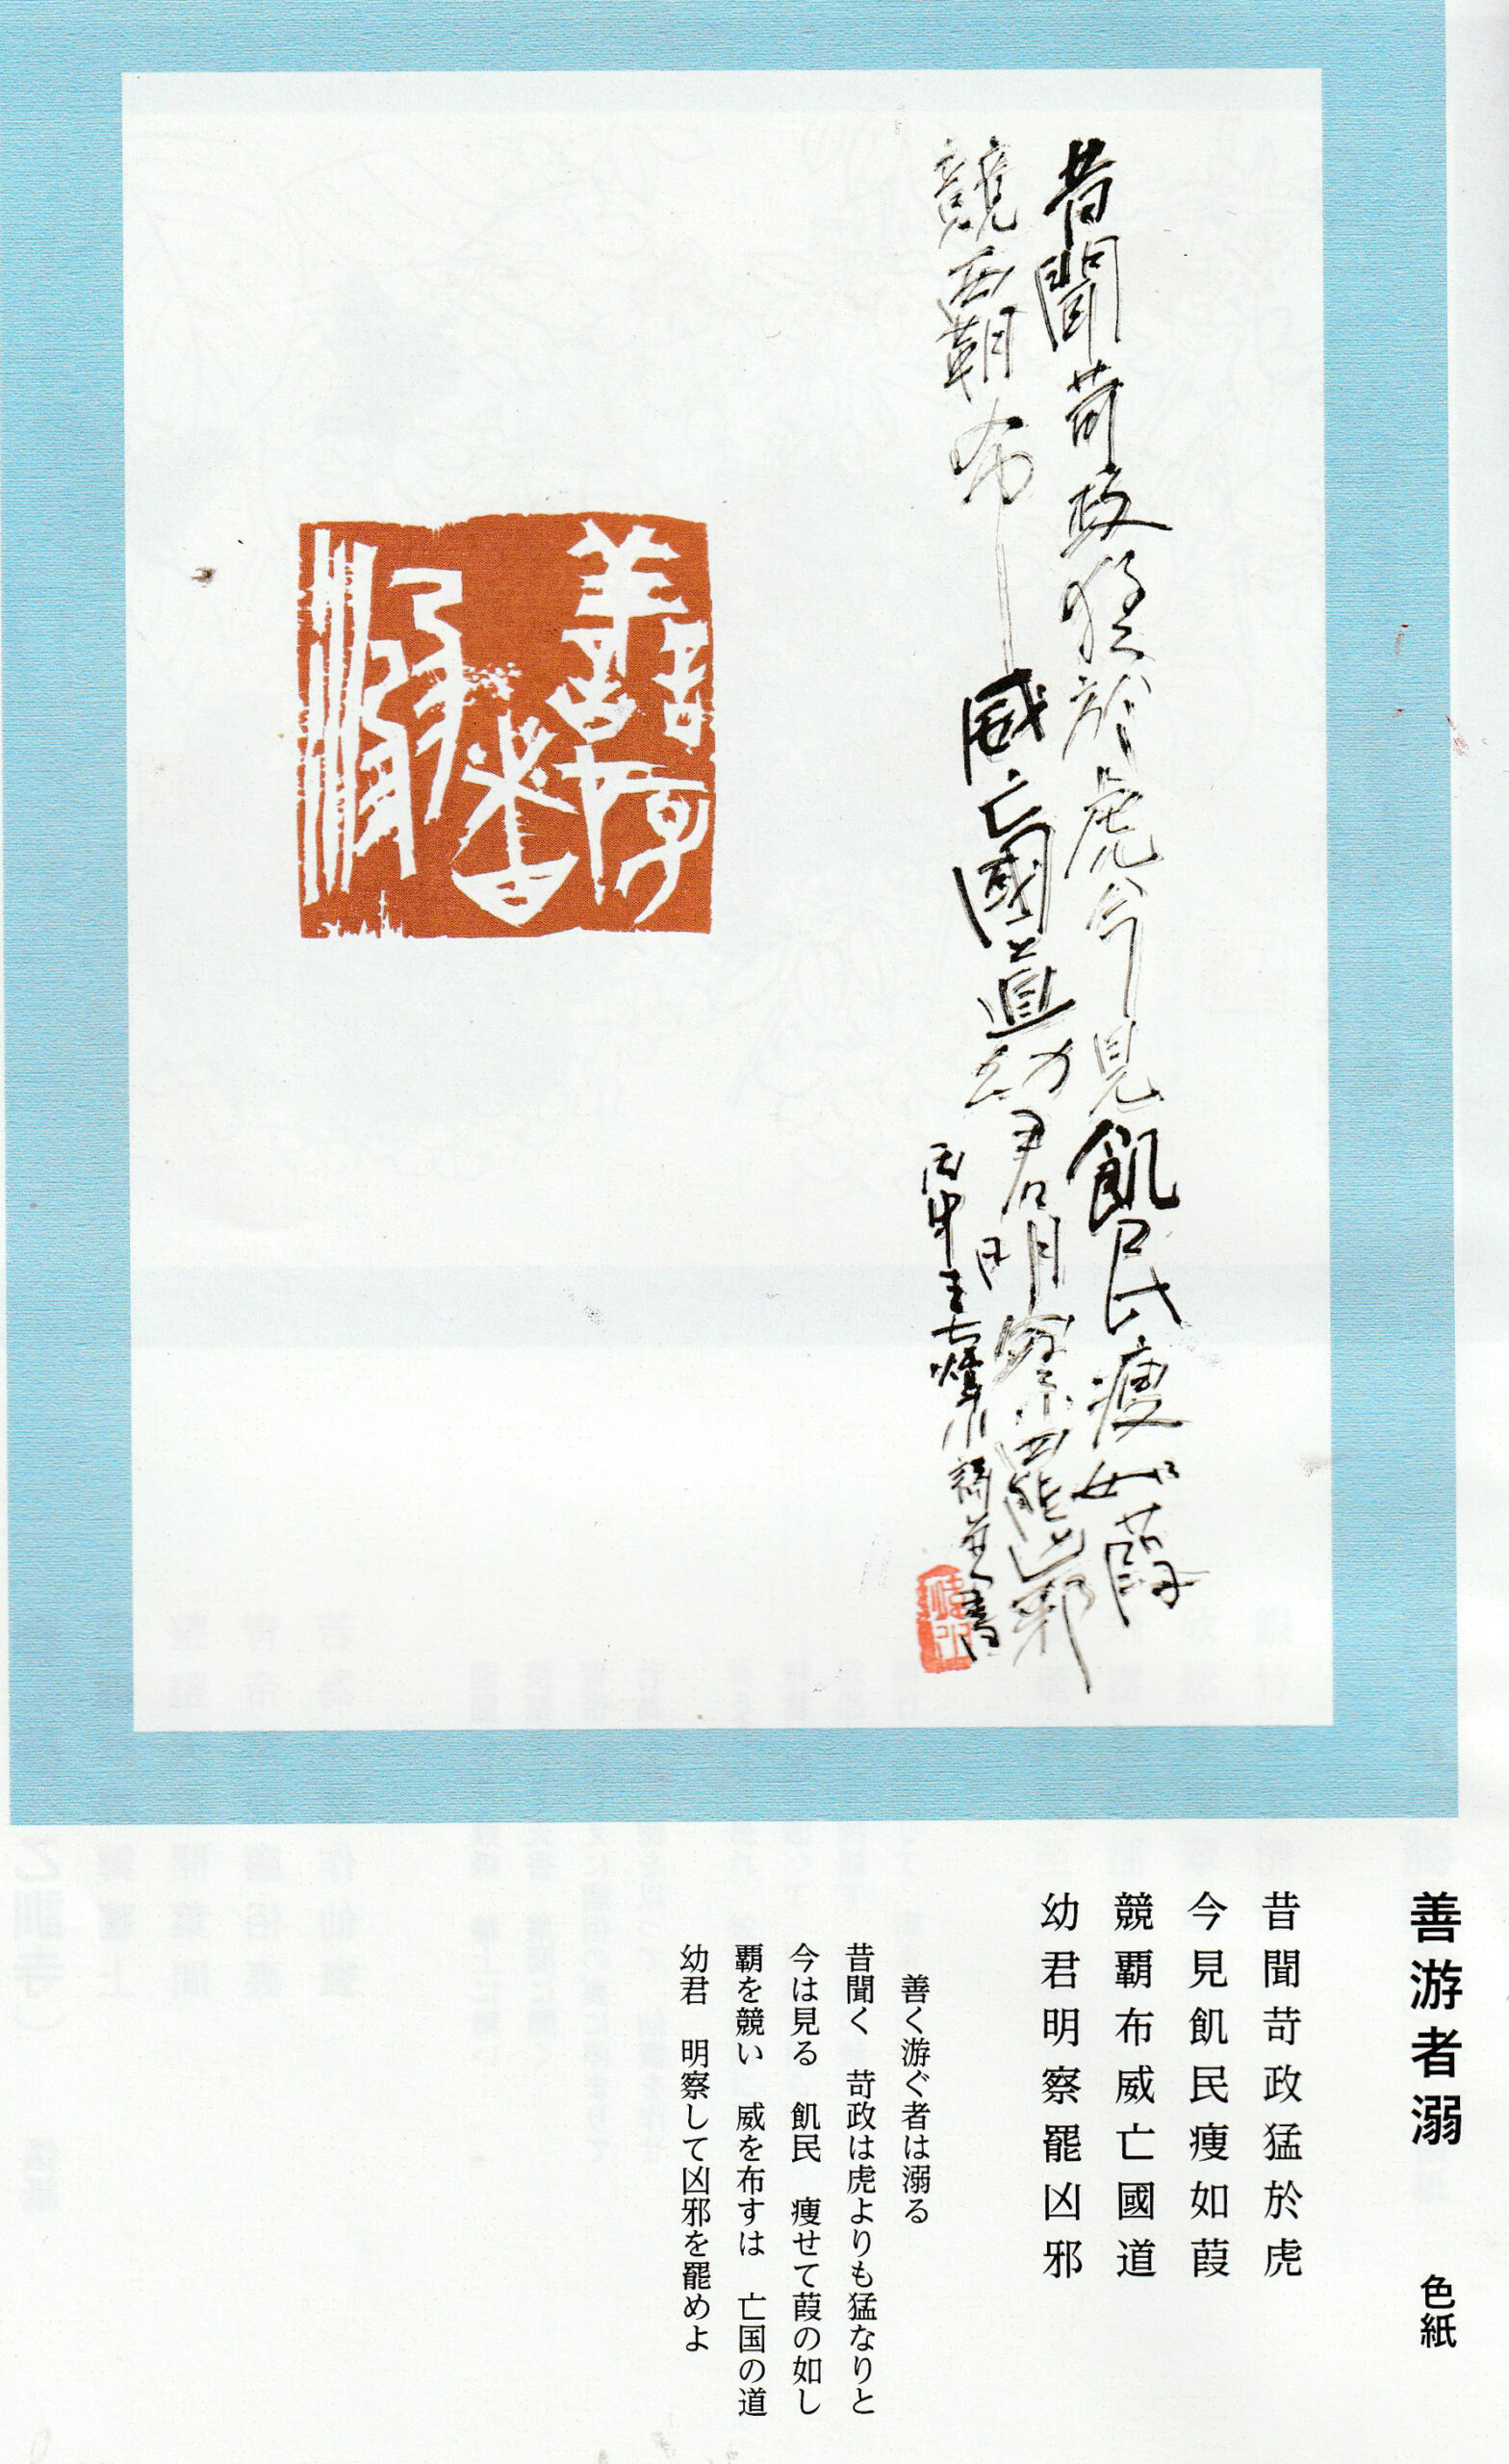 昔聞苛政猛於虎今見飢民痩如葭
競覇布威亡國道幼君明察罷凶邪
善游者溺
善游者溺 色紙
昔聞苛政猛於虎
今見飢民痩如葭
競覇布威亡國道
幼君明察罷凶邪
善く游ぐ者は溺る
昔聞く 苛政は虎よりも猛なりと
今は見る 飢民 痩せて葭の如し
覇を競い 威を布すは 亡国の道
幼君 明察して凶邪を罷めよ